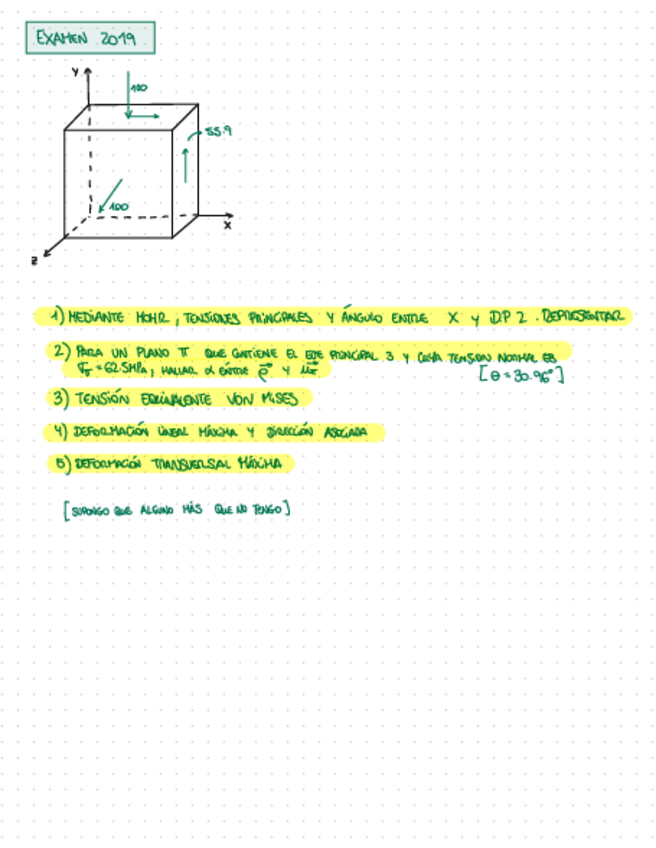 EXAMEN 2019
Y
100
55.9
100
X
Z
1) MEDIANTE MOHR, TENSIONES PRINCIPALES Y ÁNGULO ENTRE X Y D.P 2. REPRESENTAR
2) PARA UN PLANO π QUE CONTIENE EL EJE PRINCIPAL 3 Y CUYA TENSION NORMAL ES
= 62.5MPa, HALLAR α ENTRE ρ⃗ Y
[θ = 30.96°]
3) TENSIÓN EQUIVALENTE VON MISES
4) DEFORMACIÓN LINEAL MÁXIMA Y DIRECCIÓN ASOCIADA
5) DEFORMACIÓN TRANSVERSAL MÁXIMA
[SUPONGO QUE ALGUNO MÁS QUE NO TENGO]